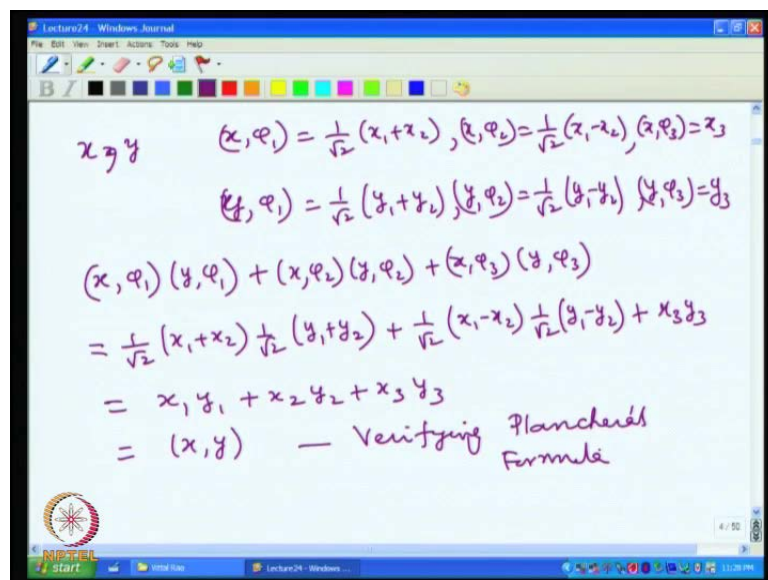 Lecture24 - Windows Journal
File Edit View Insert Actions Tools Help
B I
x, y (x, φ₁) = 1/√2 (x₁+x₂), (x, φ₂) = 1/√2 (x₁-x₂), (x, φ₃) = x₃
(y, φ₁) = 1/√2 (y₁+y₂), (y, φ₂) = 1/√2 (y₁-y₂) (y, φ₃) = y₃
(x, φ₁)(y, φ₁) + (x, φ₂)(y, φ₂) + (x, φ₃)(y, φ₃)
= 1/√2 (x₁+x₂) 1/√2 (y₁+y₂) + 1/√2 (x₁-x₂) 1/√2 (y₁-y₂) + x₃y₃
= x₁y₁ + x₂y₂ + x₃y₃
= (x, y) — Verifying Plancheral's
Formula
4 / 50
NPTEL
start Vittal Rao Lecture24 - Windows ... 11:28 PM